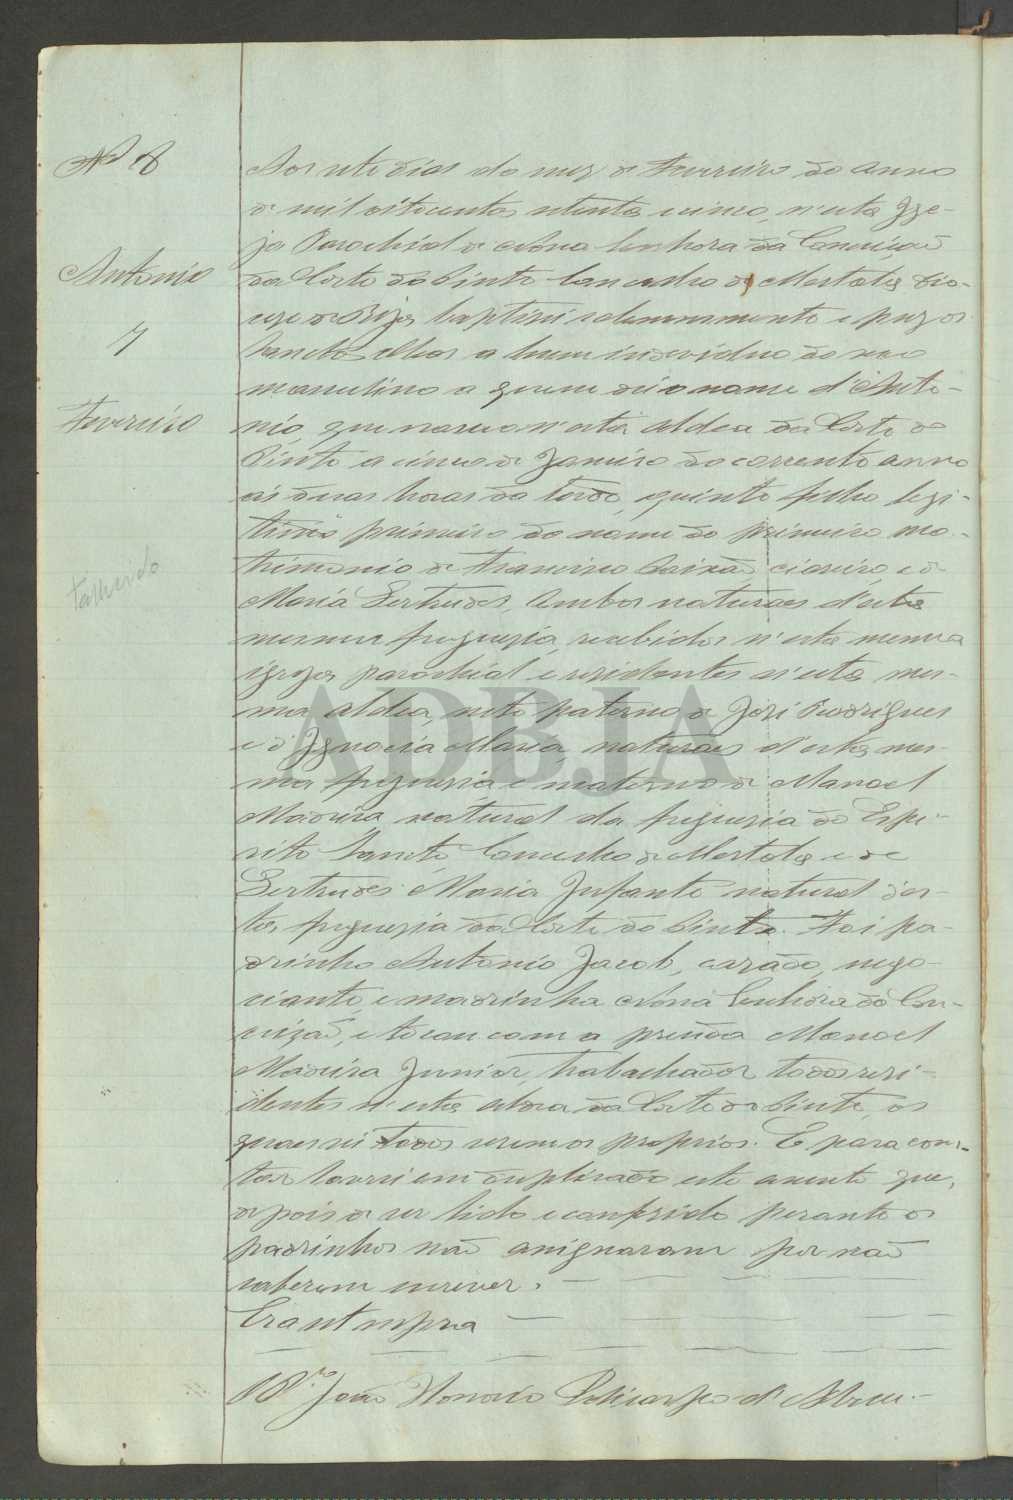 Nº 8
Antonio
7
Fevereiro
Falhecido
Aos sete dias do mez de Fevereiro do anno
de mil oitocentos setenta e cinco, n'esta Igre-
ja Parochial de Nossa Senhora da Conceição
da Corte do Pinto Concelho de Mertola Dio-
cese de Beja baptisei solemnemente e puz os
Sanctos Oleos a hum individuo do sexo
masculino a quem dei o nome d'Anto-
nio, que nasceu n'esta aldea da Corte do
Pinto a cinco de Janeiro do corrente anno
ás duas horas da tarde, quinto filho legi-
timo primeiro do nome do primeiro ma-
trimonio de Francisco Paixão, e de
Maria Gertrudes, ambos naturaes d'esta
mesma freguesia, recebidos n'esta mesma
igreja parochial e residentes n'esta mes-
ma aldea, neto paterno de José Rodrigues
e d'Ignacia Maria, naturaes d'esta mes-
ma freguesia e materno de Manoel
Madeira natural da freguesia do Espi-
rito Sancto Concelho de Mertola e de
Gertrudes Maria Infante natural des-
ta freguesia da Corte do Pinto. Foi pa-
drinho Antonio Jacob, casado, nego-
ciante, e madrinha Nossa Senhora da Con-
ceição, e tocou com a prenda Manoel
Madeira Junior, trabalhador todos resi-
dentes n'esta aldea da Corte do Pinto, os
quaes sei todos serem os proprios. E para cons-
tar lavrei em duplicado este assento que,
depois de ser lido e conferido perante os
padrinhos não assignaram por não
saberem escrever.
Era ut supra
João Honorio Policarpo d'Abreu